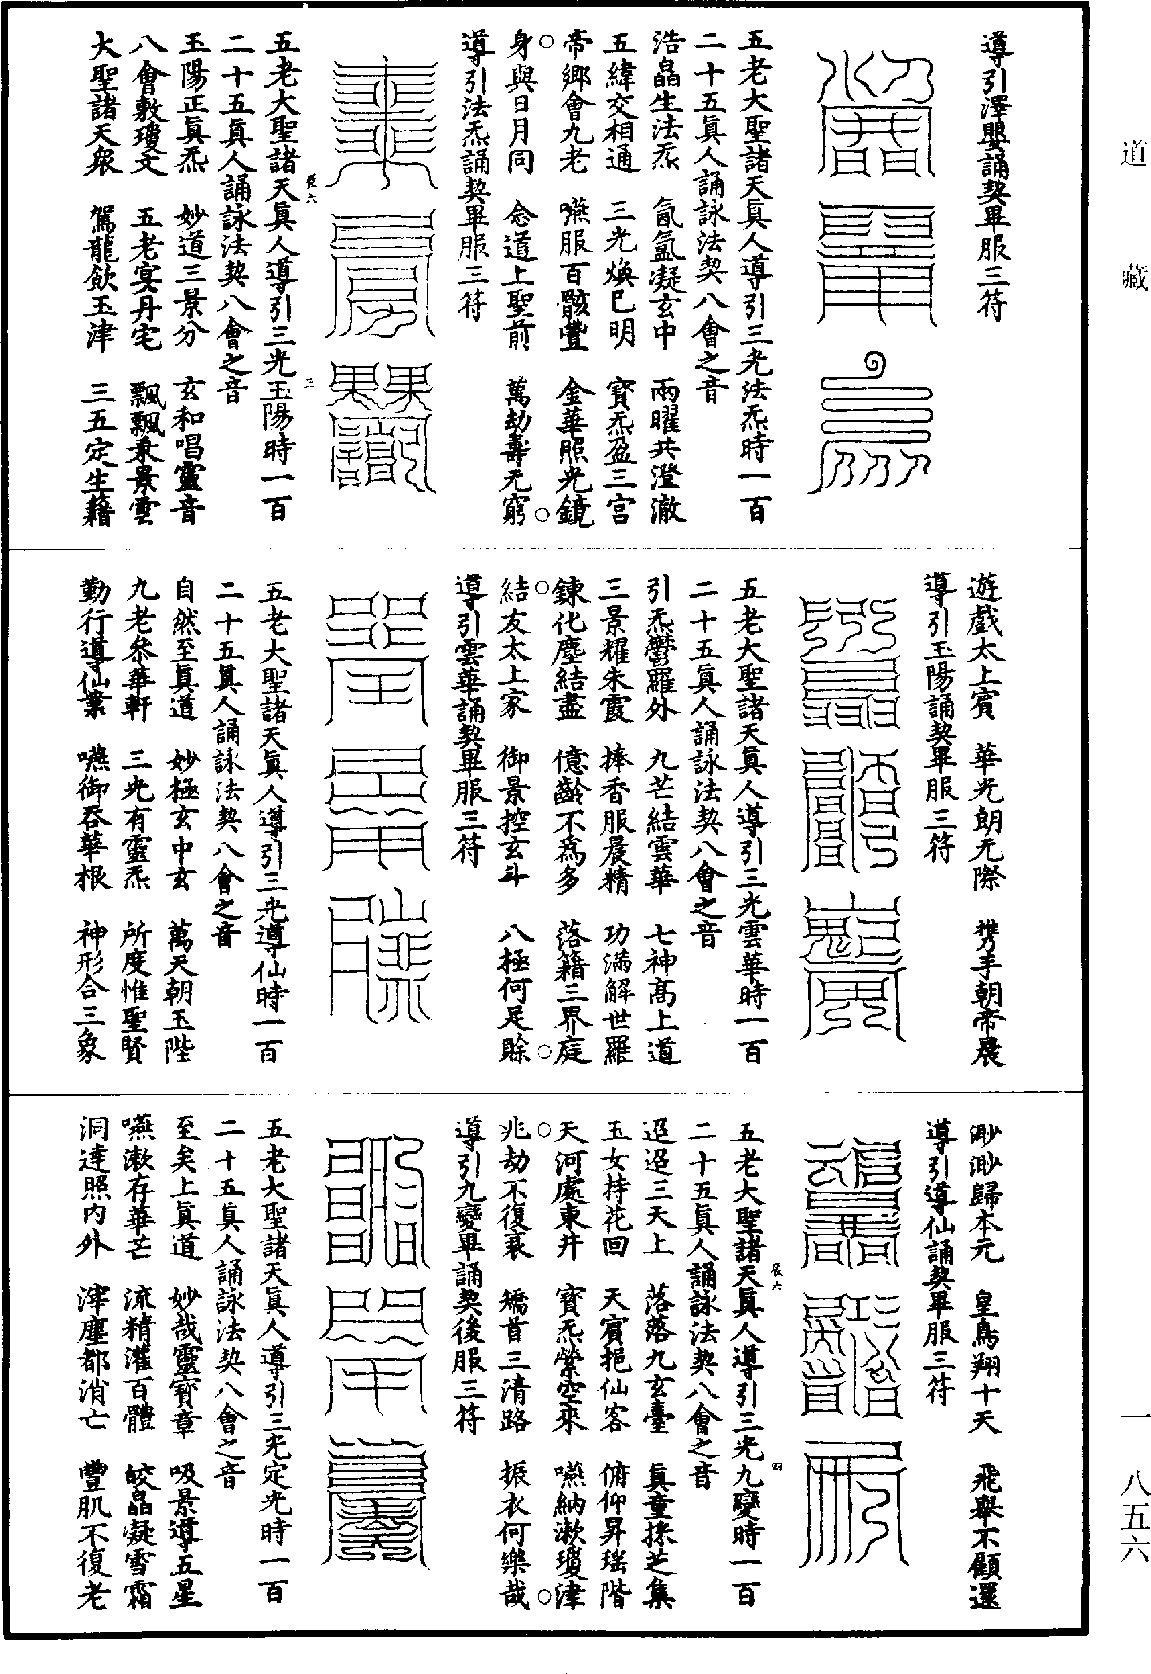 道藏
一八五六
導引澤嬰誦契畢服三符
五老大聖諸天真人導引三光法炁時一百
二十五真人誦詠法契八會之音
浩晶生法炁　氤氳凝玄中　兩曜共澄澈
五緯交相通　三光煥已明　寶炁盈三宮
帝鄉會九老　嚥服百骸豐　金華照光鏡
身與日月同　念道上聖前　萬劫壽无窮
導引法炁誦契畢服三符
五老大聖諸天真人導引三光玉陽時一百
二十五真人誦詠法契八會之音
玉陽正真炁　妙道三景分　玄和唱靈音
八會敷瓊文　五老宴丹宅　飄飄乘景雲
大聖諸天衆　駕龍飲玉津　三五定生籍
遊戲太上賓　華光朗元際　携手朝帝晨
導引玉陽誦契畢服三符
五老大聖諸天真人導引三光雲華時一百
二十五真人誦詠法契八會之音
引炁鬱羅外　九芒結雲華　七神高上道
三景耀朱霞　捧香服晨精　功滿解世羅
鍊化塵結盡　億齡不為多　落籍三界庭
結友太上家　御景控玄斗　八極何足賒
導引雲華誦契畢服三符
五老大聖諸天真人導引三光導仙時一百
二十五真人誦詠法契八會之音
自然至真道　妙極玄中玄　萬天朝玉陛
九老參華軒　三光有靈炁　所度惟聖賢
勤行導仙業　嚥御吞華根　神形合三象
渺渺歸本元　皇鳥翔十天　飛舉不顧還
導引導仙誦契畢服三符
五老大聖諸天真人導引三光九變時一百
二十五真人誦詠法契八會之音
迢迢三天上　落落九玄臺　真童採芝集
玉女持花回　天賓挹仙客　俯仰昇瑤階
天河處東井　寶炁縈空來　嚥納漱瓊津
兆劫不復衰　矯首三清路　振衣何樂哉
導引九變畢誦契後服三符
五老大聖諸天真人導引三光定光時一百
二十五真人誦詠法契八會之音
至矣上真道　妙哉靈寶章　吸景導五星
嚥漱存華芒　流精灌百體　皎晶凝雪霜
洞達照內外　滓塵都消亡　豐肌不復老